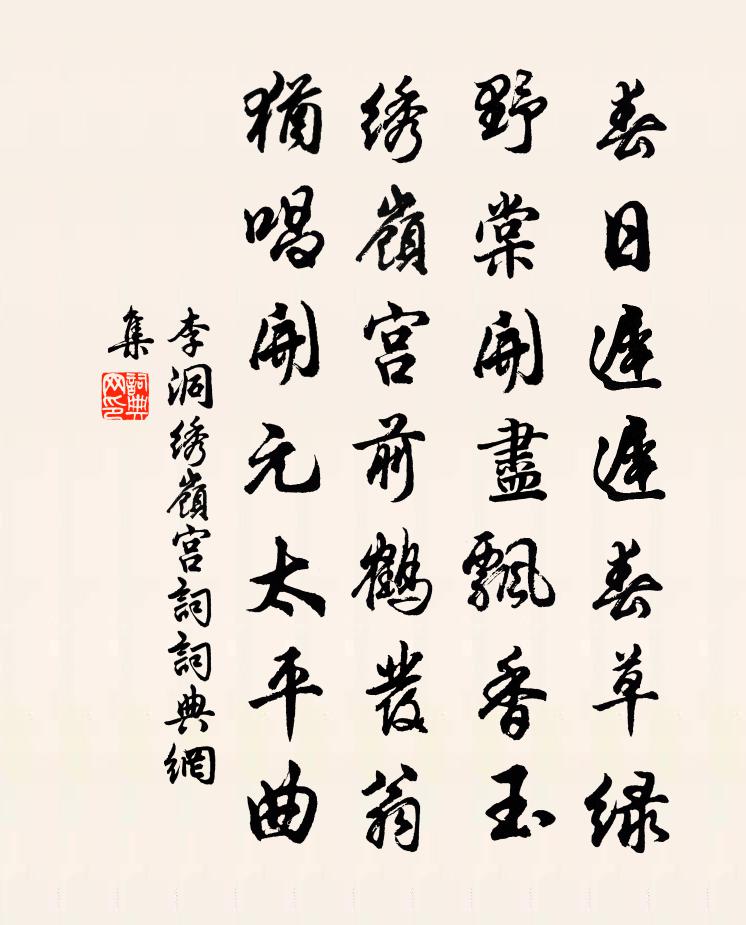 春日遲遲春草绿
野棠開盡飄香玉
绣嶺宫前鶴發翁
猶唱開元太平曲
李洞绣嶺宫詞詞典網
集
詞典
网印